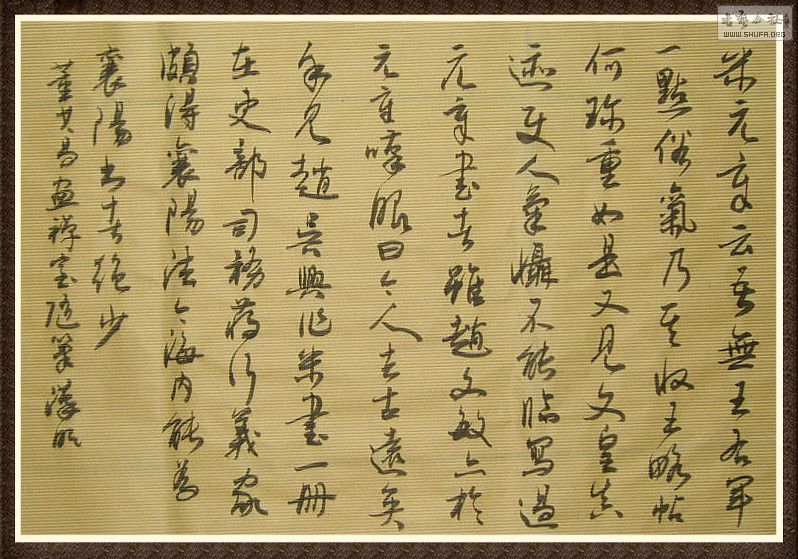 米元章云吾無王右軍
一點俗氣乃其收王略帖
何珍重如是又見文皇真
迹使人氣懾不能臨寫過
元章書者雖趙文敏亦於
元章嘆眼曰今人去古遠矣
余見趙吳興作米書一册
在史部司務蔣行義家
頗得襄陽法今海內能為
襄陽書者絕少
董其昌畫禪室隨筆
书艺公社
WWW.SHUFA.ORG